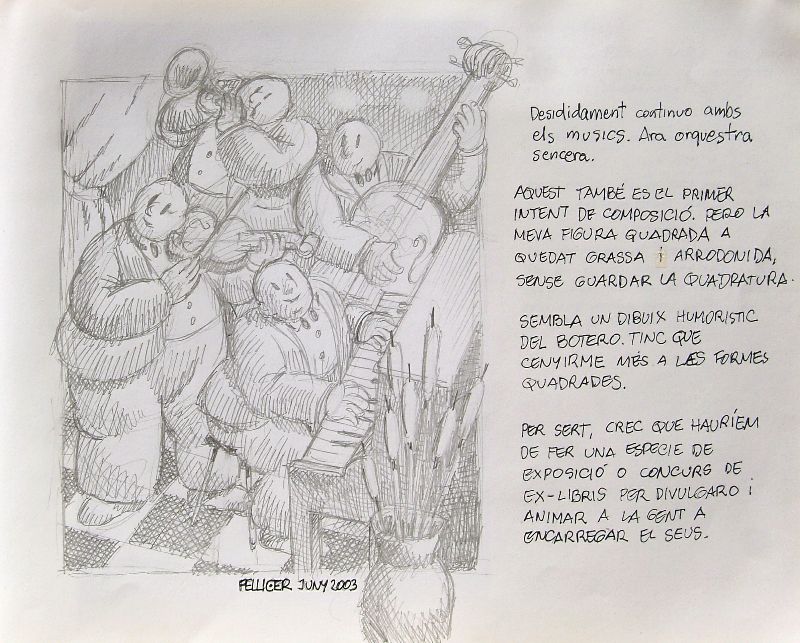 Desididament continuo ambs
els musics. Ara orquestra
sencera.
AQUEST TAMBÉ ES EL PRIMER
INTENT DE COMPOSICIÓ. PERO LA
MEVA FIGURA QUADRADA A
QUEDAT GRASSA i ARRODONIDA,
SENSE GUARDAR LA QUADRATURA.
SEMBLA UN DIBUIX HUMORISTIC
DEL BOTERO. TINC QUE
CENYIRME MÉS A LES FORMES
QUADRADES.
PER SERT, CREC QUE HAURÍEM
DE FER UNA ESPECIE DE
EXPOSICIÓ O CONCURS DE
EX-LIBRIS PER DIVULGARO i
ANIMAR A LA GENT A
ENCARREGAR EL SEUS.
PELLICER JUNY 2003